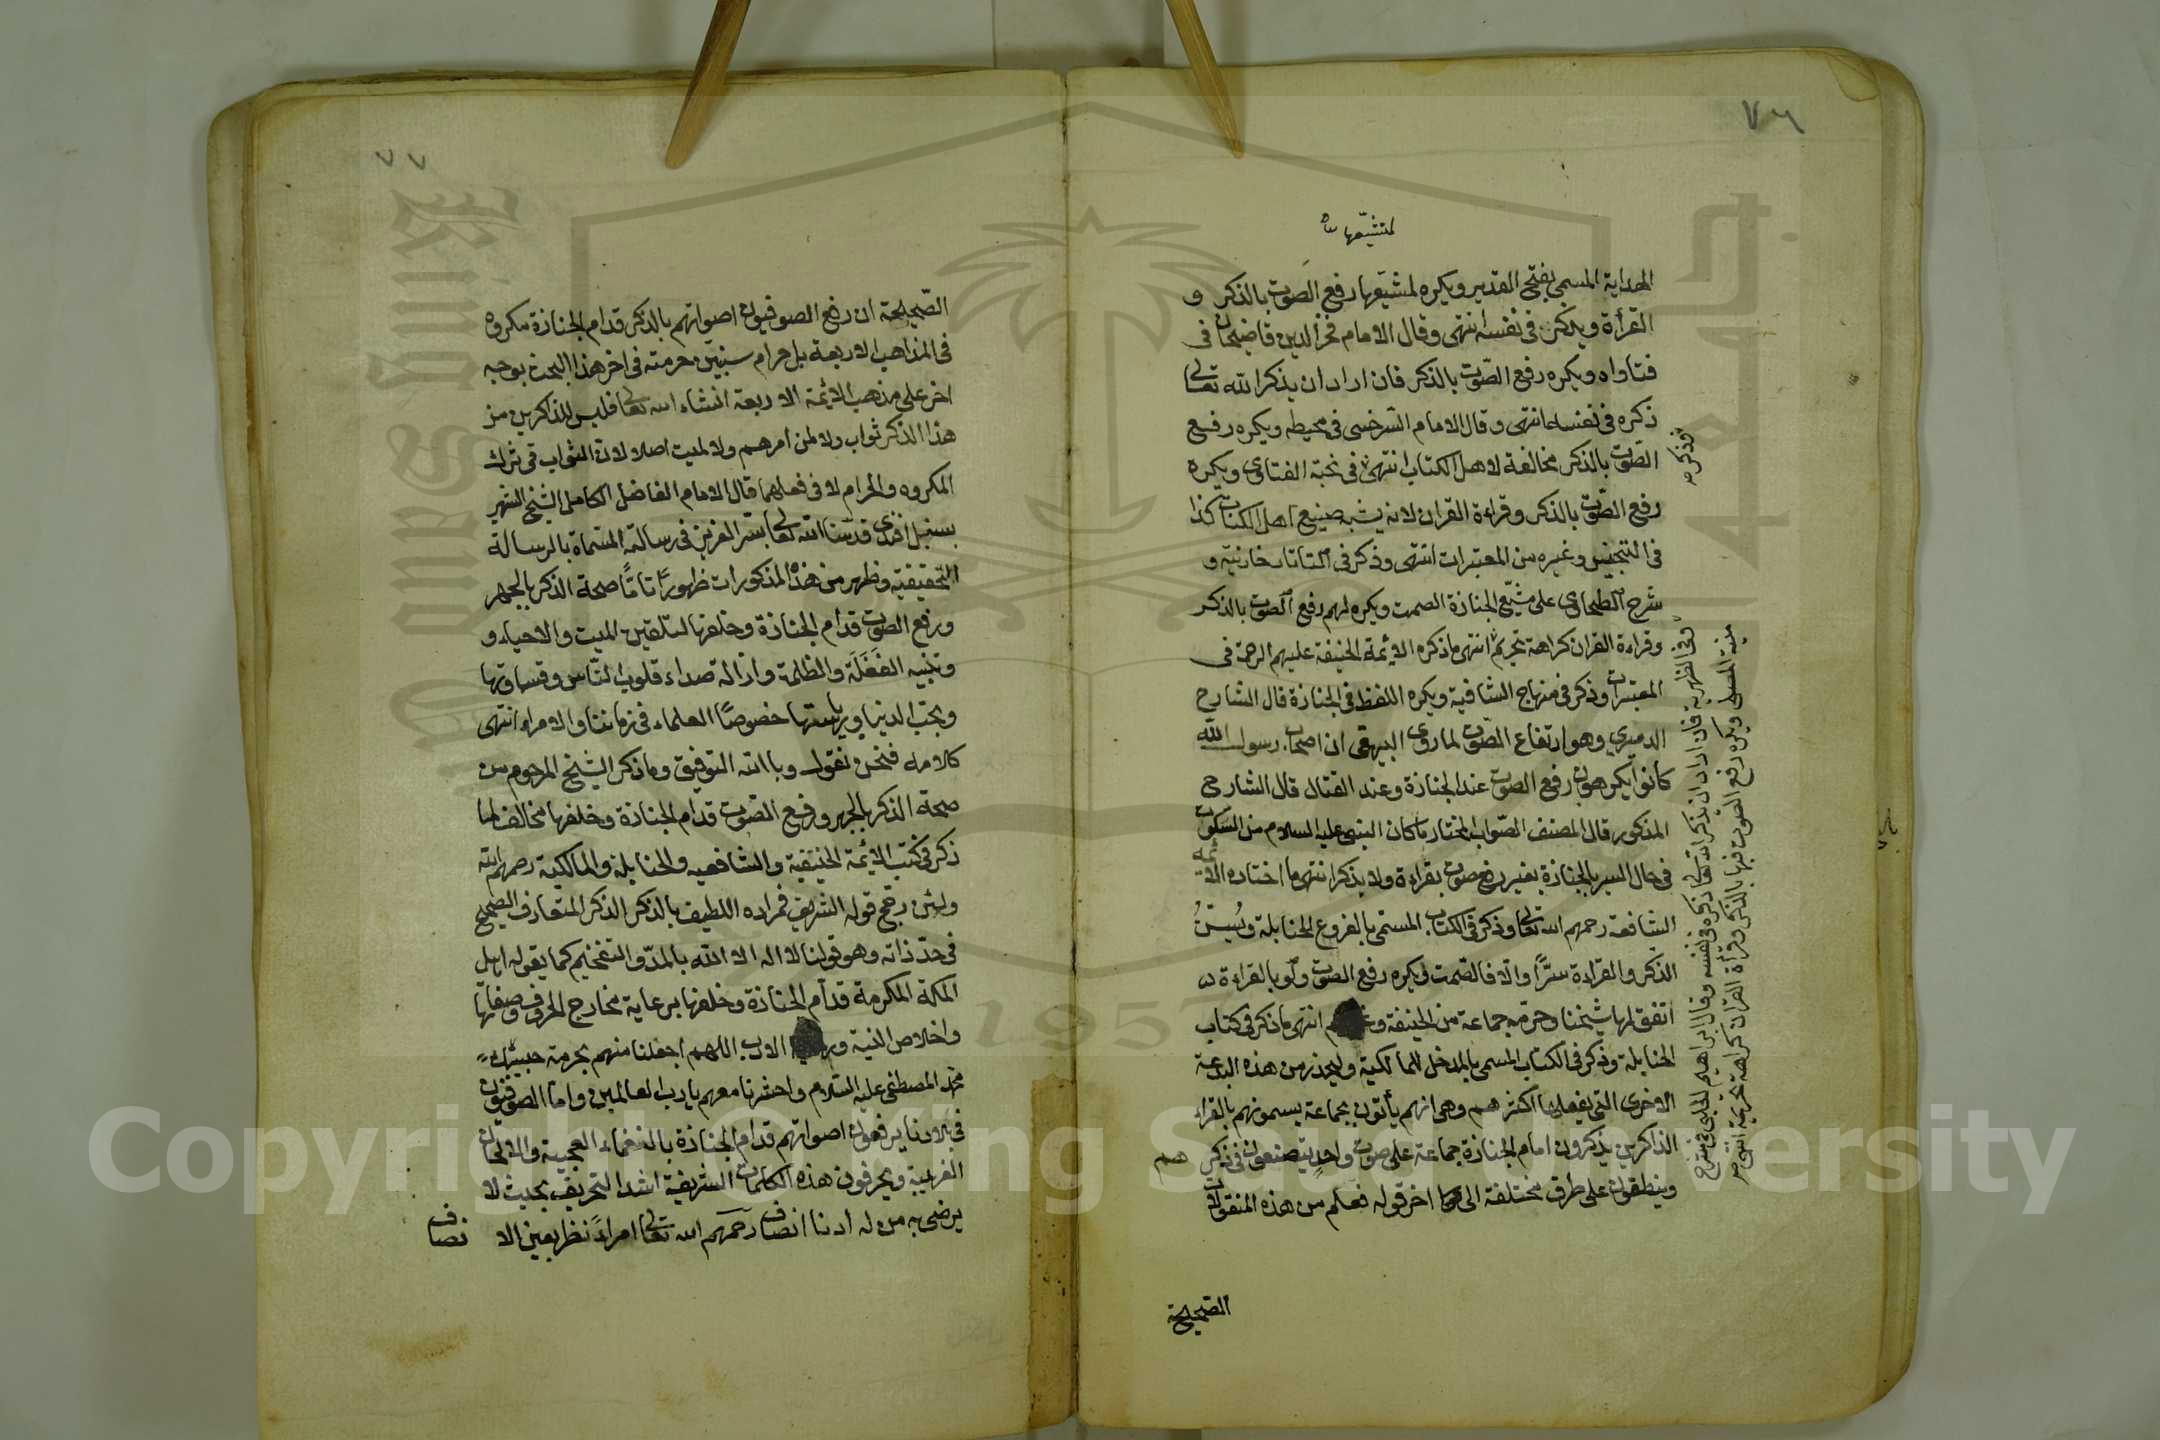 ٧٦
لمتشيّعها
الهداية المسمى بفتح القدير ويكره لمشيّعها رفع الصوت بالذكر و
القرأة ويذكر في نفسه انتهى وقال الامام فخر الدين قاضيخان في
فتاواه ويكره رفع الصّوت بالذكر فان اراد ان يذكر الله تعالى
ذكره في نفسه انتهى وقال الامام السّرخسى في محيطه ويكره رفع
الصّوت بالذكر مخالفة لاهل الكتاب انتهى في نخبة الفتاوى ويكره
رفع الصّوت بالذكر وقراءة القران لانه يشبه صنيع اهل الكتاب كذا
في التجنيس وغيره من المعتبرات انتهى وذكر في التاتارخانية و
شرح الطحاوى على مشيّع الجنازة الصمت ويكره لهم رفع الصوت بالذكر
وقراءة القران كراهة تحريم انتهى ماذكره الائمة الحنيفة عليهم الرحمة في
المعتبرات وذكر في منهاج الشافية ويكره اللغط في الجنازة قال الشارح
الدميري وهو ارتفاع الصّوت لما روى البيهقى ان اصحاب رسول الله
كانوا يكرهون رفع الصوت عند الجنازة وعند القتال قال الشارح
المذكور قال المصنف الصّواب المختار ماكان النبى عليه السلام من السكوت
في حال السير بالجنازة بغير رفع صوت بقراءة ولا بذكر انتهى ما اختاره الائمة
الشافعة رحمهم الله تعالى وذكر في الكتاب المسمّى بالفروع الحنابلة ويُسنّ
الذكر والقراءة سرًّا والّا فالصّمت ويكره رفع الصوت ولو بالقراءة
اتفق لها شيخنا وحرّمه جماعة من الحنيفة انتهى ماذكر في كتاب
الحنابلة وذكر في الكتاب المسمى بالمدخل للمالكية وليحذر من هذه البدعة
الاخرى التي يفعلها اكثرهم وهى انهم يأتون بجماعة يسمونهم بالقراء
الذاكرين يذكرون امام الجنازة جماعة على صوت واحد يتصنعون في ذكرهم
وينطقون على طرق مختلفة الى اخر قوله فعلم من هذه المنقولات
الصّحيحة
وذكر
وفى الظهيرية فان اراد ان يذكر الله تعالى ذكره في نفسه وقال ابراهيم الحلبى في شرح
منية المصلى ويكره رفع الصوت فيها بالذكر وقرأة القران كراهة تحريمة انتهى
٧٧
الصّحيحة ان رفع الصوفيون اصواتهم بالذكر قدام الجنازة مكروه
في المذاهب الاربعة بل حرام سنبيّن حرمته في اخر هذا البحث بوجه
اخر على مذهب الائمة الاربعة انشاء الله تعالى فليس للذاكرين من
هذا الذكر ثواب ولا لمن امرهم ولا لميت اصلا لان الثواب في ترك
المكروه والحرام لا في فعلهما قال الامام الفاضل الكامل الشيخ الشهير
بسنبل افندى قدّسنا الله تعالى بسرّ العزيز في رسالته المسماة بالرسالة
التحقيقية وظهر من هذه المذكورات ظهورًا تامًّا صحة الذكر بالجهر
ورفع الصّوت قدام الجنازة وخلفها لتلقين الميت والاحياء و
وتنبيه الغَفَلَة والظلمة وازالة صداء قلوب النّاس وقساوتها
وبحبّ الدنيا ورياستها خصوصًا العلماء في زماننا والامراء انتهى
كلامه فنحن نقول وبالله التوفيق وماذكر الشيخ المرحوم من
صحة الذكر بالجهر ورفع الصّوت قدام الجنازة وخلفها مخالف لما
ذكر في كتب الائمة الحنيفية والشافعيه والحنابلة والمالكية رحمهم الله
ولئن رجح قوله الشريف فمراده اللطيف بالذكر الذكر المتعارف الصحيح
في حدّ ذاته وهو قولنا لا اله الا الله بالمدّ والتفخيم كما يقوله اهل
المكة المكرمة قدام الجنازة وخلفها برعاية مخارج الحروف وصفاتها
واخلاص النية الادب اللهم اجعلنا منهم بحرمة حبيبك
محمّد المصطفى عليه السّلام واحشرنا معهم يا رب العالمين وامّا الصوفيّون
في بلادنا يرفعون اصواتهم قدام الجنازة بالنغمات العجيبة والالحان
الغريبة ويحرفون هذه الكلمات الشريفة اشد التحريف بحيث لا
يرضى به من له ادنا انصاف رحمهم الله تعالى امراءً نظر بعين الا
نصاف
Copyright © King Saud University
King Saud University
1957